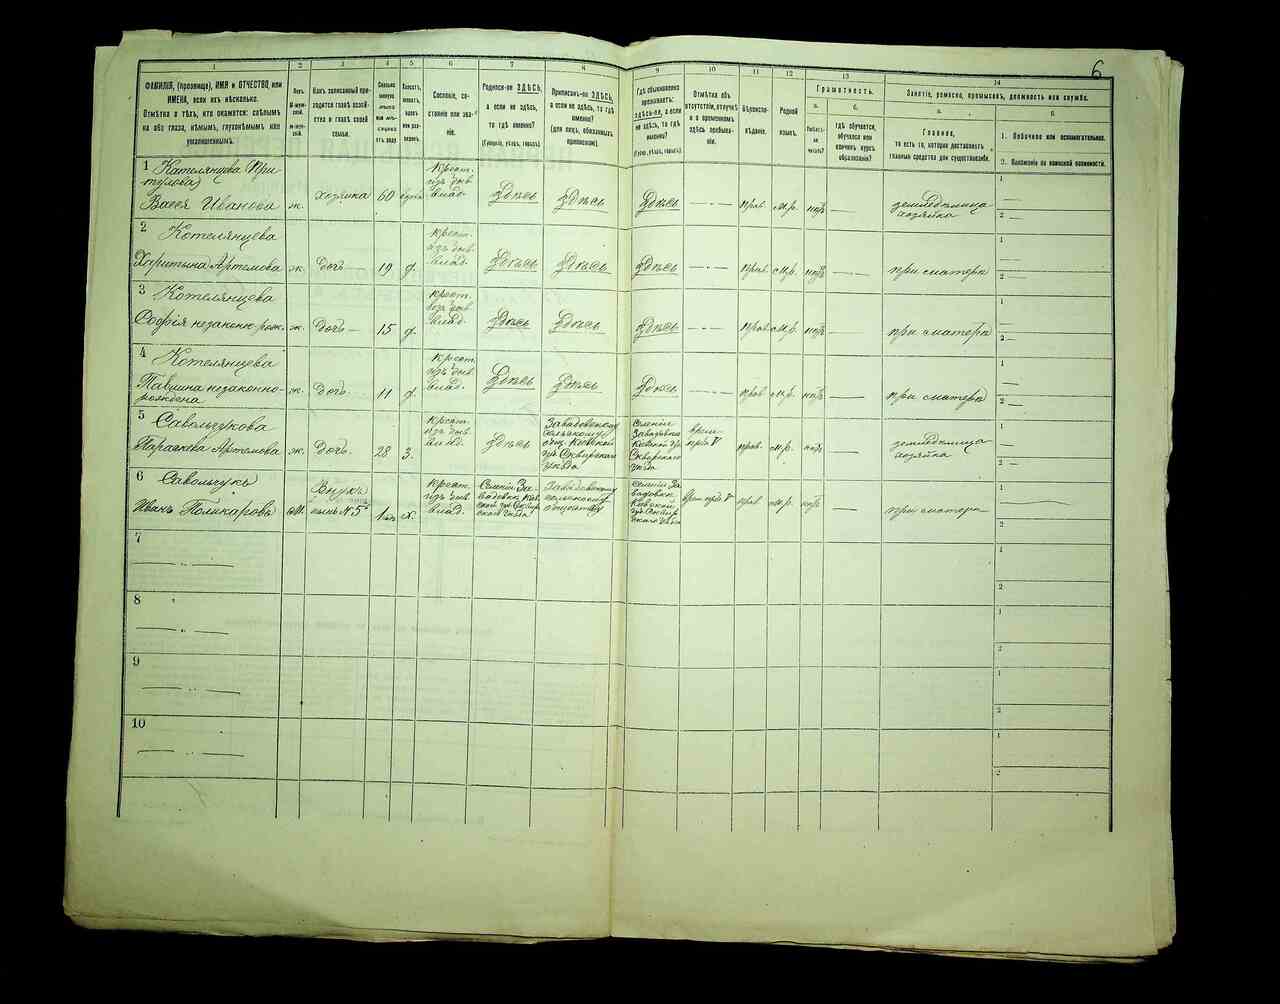 6
1 2 3 4 5 6 7 8 9 10 11 12 13 14
ФАМИЛІЯ, (прозвище), ИМЯ и ОТЧЕСТВО или
ИМЕНА, если ихъ нѣсколько.
Отмѣтка о тѣхъ, кто окажется: слѣпымъ
на оба глаза, нѣмымъ, глухонѣмымъ или
умалишеннымъ.
Полъ.
М-муж-
ской.
Ж-жен-
скій.
Какъ записанный при-
ходится главѣ хозяй-
ства и главѣ своей
семьи.
Сколько
минуло
лѣтъ
или мѣ-
сяцевъ
отъ роду
Сословіе, со-
стояніе или зва-
ніе.
Родился-ли ЗДѢСЬ,
а если не здѣсь,
то гдѣ именно?
(Губернія, уѣздъ, городъ).
Приписанъ-ли ЗДѢСЬ,
а если не здѣсь, то гдѣ
именно?
(для лицъ, обязанныхъ
припискою).
Гдѣ обыкновенно
проживаетъ:
Здѣсь-ли, а если
не здѣсь, то гдѣ
именно?
(Губер., уѣздъ, городъ).
Отмѣтка объ
отсутствіи, отлучкѣ
и о временномъ
здѣсь пребыва-
ніи.
Вѣроиспо-
вѣданіе.
Родной
языкъ.
Грамотность.
а. б.
Умѣетъ-
ли
читать?
гдѣ обучается,
обучался или
кончилъ курсъ
образованія?
Занятіе, ремесло, промыселъ, должность или служба.
а. б.
Главное,
то есть то, которое доставляетъ
главныя средства для существованія.
1. Побочное или вспомогательное.
2. Положеніе по воинской повинности.
1 Котелянцева
Васса Иванова ж. хозяйка 60 вдова крест. изъ быв. влад. Здѣсь Здѣсь Здѣсь — · — прав. м.р. нѣтъ — земледѣлица хозяйка 1 — 2 —
2 Котелянцева
Харитина Артемова ж. дочь 19 д. крест. изъ быв. влад. Здѣсь Здѣсь Здѣсь — · — прав. м.р. нѣтъ — при матери 1 — 2 —
3 Котелянцева
Софія незаконно рож. ж. дочь — 15 д. крест. изъ быв. влад. Здѣсь Здѣсь Здѣсь — · — прав. м.р. нѣтъ — при матери 1 — 2 —
4 Котелянцева
Павлина незаконно-
рождена ж. дочь 11 д. крест. изъ быв. влад. Здѣсь Здѣсь Здѣсь — · — прав. м.р. нѣтъ — при матери 1 — 2 —
5 Савольчукова
Параскева Артемова ж. дочь. 28 З. крест. изъ быв. влад. Здѣсь Завадовскому сельскому общ. Кіевской губ. Сквирскаго уѣзда селеніи Завадовка Кіевской губ. Сквирскаго уѣзда врем. преб. прав. м.р. нѣтъ — земледѣлица хозяйка 1 — 2 —
6 Савольчукъ
Иванъ Поликарповъ М. Внукъ сынъ № 5 1 х. крест. изъ быв. влад. Селеніи Завадовкѣ Кіевской губ. Сквирскаго уѣзда Завадовскому сельскому обществу селеніи Завадовкѣ Кіевской губ. Сквирскаго уѣзда Врем. преб. прав. м.р. нѣтъ — при матери 1 — 2
7 1
2
8 1
2
9 1
2
10 1
2